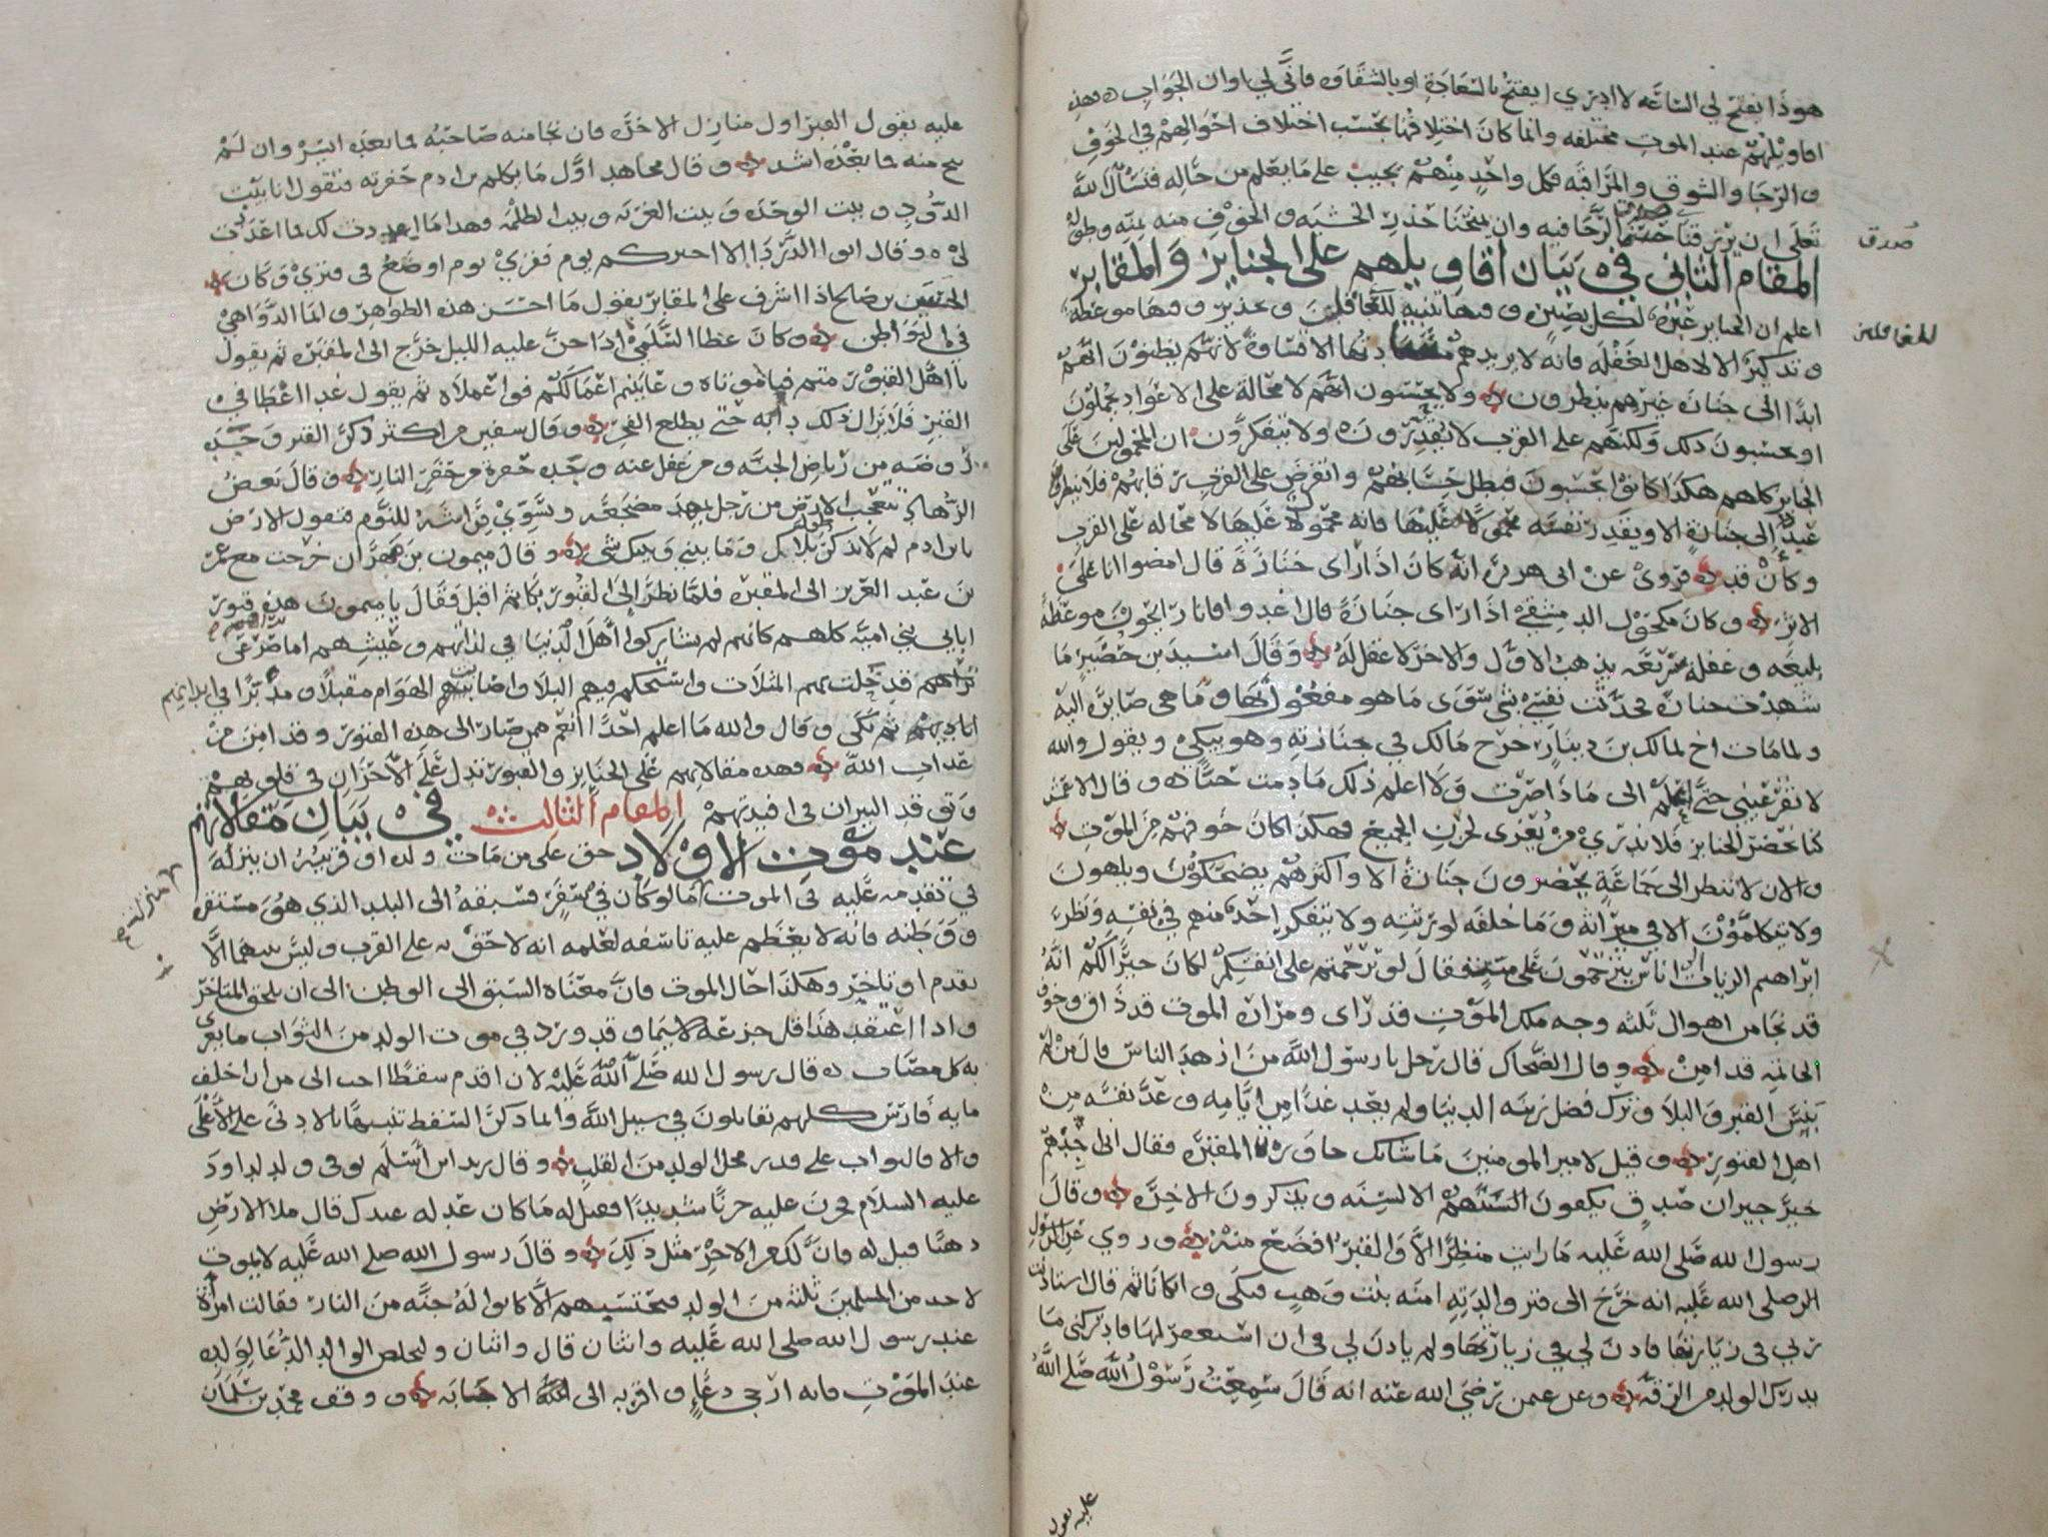 هوذا يفتح لي الساعه لا ادري ايفتح بالسعادة او بالشقاوه فانى لي اوان الجواب فهذه
اقاويلهم عند الموت مختلفه وانما كان اختلافها بحسب اختلاف احوالهم في الخوف
والرجا والشوق والمراقبه فكل واحد منهم يجيب على ما يعلم من حاله فنسأل الله
تعلى ان يرزقنا الرجا فيه وان يمنحنا حذر الخشيه والخوف منه بمنه وطوله
صدق
المقام الثاني في بيان اقاويلهم على الجنايز والمقابر
اعلم ان الجنايز عبرة لكل بصير وفيها تنبيه للغافلين وتحذير وفيها موعظة
للغافلين
وتذكير الا لاهل الغفله فانه لا يريدهم مشاهدتها الا قساوة لانهم يظنون انهم
ابدا الى جنازة غيرهم ينظرون ولا يحسبون انهم لا محالة على الاعواد يحملون
او يحسبون ذلك ولكنهم على القرب لا يقدرون ولا يتفكرون ان المحمولين على
الجنايز كلهم هكذا كانوا يحسبون فبطل حسابهم وانقرض على القرب زمانهم فلا ينظرن
عبد الى جنازة الا ويقدر نفسه محمولا عليها فانه محمول عليها لا محاله على القرب
وكأن قد فروى عن ابى هريرة انه كان اذا راى جنازة قال امضوا انا على
الاثر وكان مكحول الدمشقي اذا راى جنازة قال اغدوا فانا رايحون موعظة
بليغه وغفلة سريعه يذهب الاول والاخر لا عقل له وقال اسيد بن حضير ما
شهدت جنازة فحدثت نفسي بشي سوى ما هو مفعول بها وما هي صايرة اليه
ولما مات اخ لمالك بن دينار خرج مالك في جنازته وهو يبكي ويقول والله
لا تقر عيني حتى اعلم الى ماذا صرت ولا اعلم ذلك ما دمت حيا وقال الاعمش
كنا نحضر الجنايز فلا ندري من نعزى لحزن الجميع فهكذا كان خوفهم من الموت
والان لا ننظر الى جماعة يحضرون جنازة الا واكثرهم يضحكون ويلهون
ولا يتكلمون الا في ميراثه وما خلفه لورثته ولا يتفكر احد منهم في نفسه ونظر
ابراهيم الزيات الى اناس يترحمون على ميت فقال لو ترحمتم على انفسكم لكان خيرا لكم انه
قد نجا من اهوال ثلثه وجه ملك الموت قد راى ومرارة الموت قد ذاق وخوف
الخاتمه قد امن وقال الضحاك قال رجل يا رسول الله من ازهد الناس قال من لم
ينس القبر والبلا وترك فضل زينه الدنيا ولم يعد غدا من ايامه وعد نفسه من
اهل القبور وقيل لامير المومنين ما شانك جاورت المقبرة فقال انى اجدهم
خير جيران صدق يكفون الالسنه ويذكرون الاخرة وقال
رسول الله صلى الله عليه ما رايت منظرا الا والقبر افضح منه وروي عن الرسول
صلى الله عليه انه خرج الى قبر والدته امنه بنت وهب فبكى وابكانا ثم قال استاذنت
ربي في زيارتها فاذن لي في زيارتها ولم ياذن لي في ان استغفر لها فادركني ما
يدرك الولد من الرقه وعن رضي الله عنه انه قال سمعت رسول الله صلى الله
عليه يقول
عليه يقول القبر اول منازل الاخرة فان نجا منه صاحبه فما بعده ايسر وان لم
ينج منه فما بعده اشد وقال مجاهد اول ما يكلم بن ادم حفرته فتقول انا بيت
الدود وبيت الوحده وبيت الغربه وبيت الظلمه وهذا ما اعددت لك فما اعددت
لي وقال ابوا الدردا الا اخبركم بيوم فقري يوم اوضع في قبري وكان
الحسن بن صالح اذا اشرف على المقابر يقول ما احسن هذه الظواهر وانما الدواهي
في البواطن وكان عطا السلمي اذا جن عليه الليل خرج الى المقبره ثم يقول
يا اهل القبور متم فيا موتاه وعاينتم اعمالكم فوا عملاه ثم يقول غدا عطا في
القبر فلا يزال ذلك دأبه حتى يطلع الفجر وقال سفين من اكثر ذكر القبر وجده
روضه من رياض الجنه ومن غفل عنه وجده حفرة من حفر النار وقال بعض
الزهاد تتعجب الارض من رجل يمهد مضجعه ويسوي فراشه للنوم فتقول الارض
يا بن ادم لم لا تذكر طول بلاك وما بيني وبينك شي وقال ميمون بن مهران خرجت مع عمر
بن عبد العزيز الى المقبره فلما نظر الى القبور بكا ثم اقبل فقال يا ميمون هذه قبور
ابايي بني اميه كلهم كانهم لم يشاركوا اهل الدنيا في لذاتهم وعيشهم اما صرعى
تراهم
تراهم قد خلت بهم المثلات واستحكم فيهم البلا واصابت الهوام مقيلا في ابدانهم
ثم بكى وقال والله ما اعلم احدا انعم ممن صار الى هذه القبور وقد امن من
عذاب الله فهذه مقالاتهم على الجنايز والقبور تدل على الاحزان في قلوبهم
وتوقد النيران في افيدتهم المقام الثالث في بيان مقالاتهم
عند موت الاولاد حق على من مات ولده او قريبه ان ينزله
منزلته
في تقدمه عليه في الموت كما لو كان في سفر فسبقه الى البلد الذي هو مستقره
ووطنه فانه لا يعظم عليه تاسفه لعلمه انه لاحق به على القرب وليس بينهما الا
تقدم او تاخر وهكذا حال الموت فان معناه السبق الى الوطن الى ان يلحق المتاخر
واذا اعتقد هذا قل جزعه لا سيما وقد ورد في موت الولد من الثواب ما يعزى
به كل مصاب قال رسول الله صلى الله عليه لان اقدم سقطا احب الى من ان اخلف
مايه فارس كلهم يقاتلون في سبيل الله وانما ذكر السقط تنبيها بالادنى على الاعلى
والا فالثواب على قدر محل الولد من القلب وقال زيد ابن اسلم توفي ولد لداود
عليه السلام فحزن عليه حزنا شديدا فقيل له ما كان عدله عندك قال ملا الارض
ذهبا قيل له فان لك من الاجر مثل ذلك وقال رسول الله صلى الله عليه لا يموت
لاحد من المسلمين ثلثه من الولد فيحتسبهم الا كانوا له جنه من النار فقالت امراة
عند رسول الله صلى الله عليه واثنان قال واثنان وليخلص الوالد الدعا لولده
عند الموت فانه ارجى دعاء واقربه الى الاجابه ووقف محمد بن سليمان